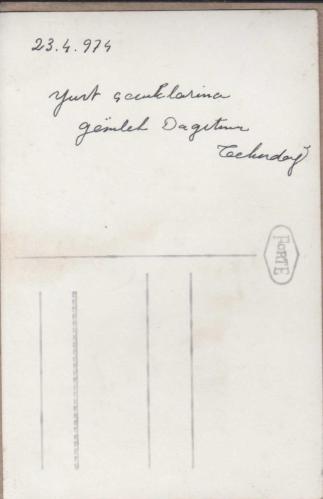 23.4.974
Yurt çocuklarına
gömlek Dağıtımı
Tekirdağ
FORTE